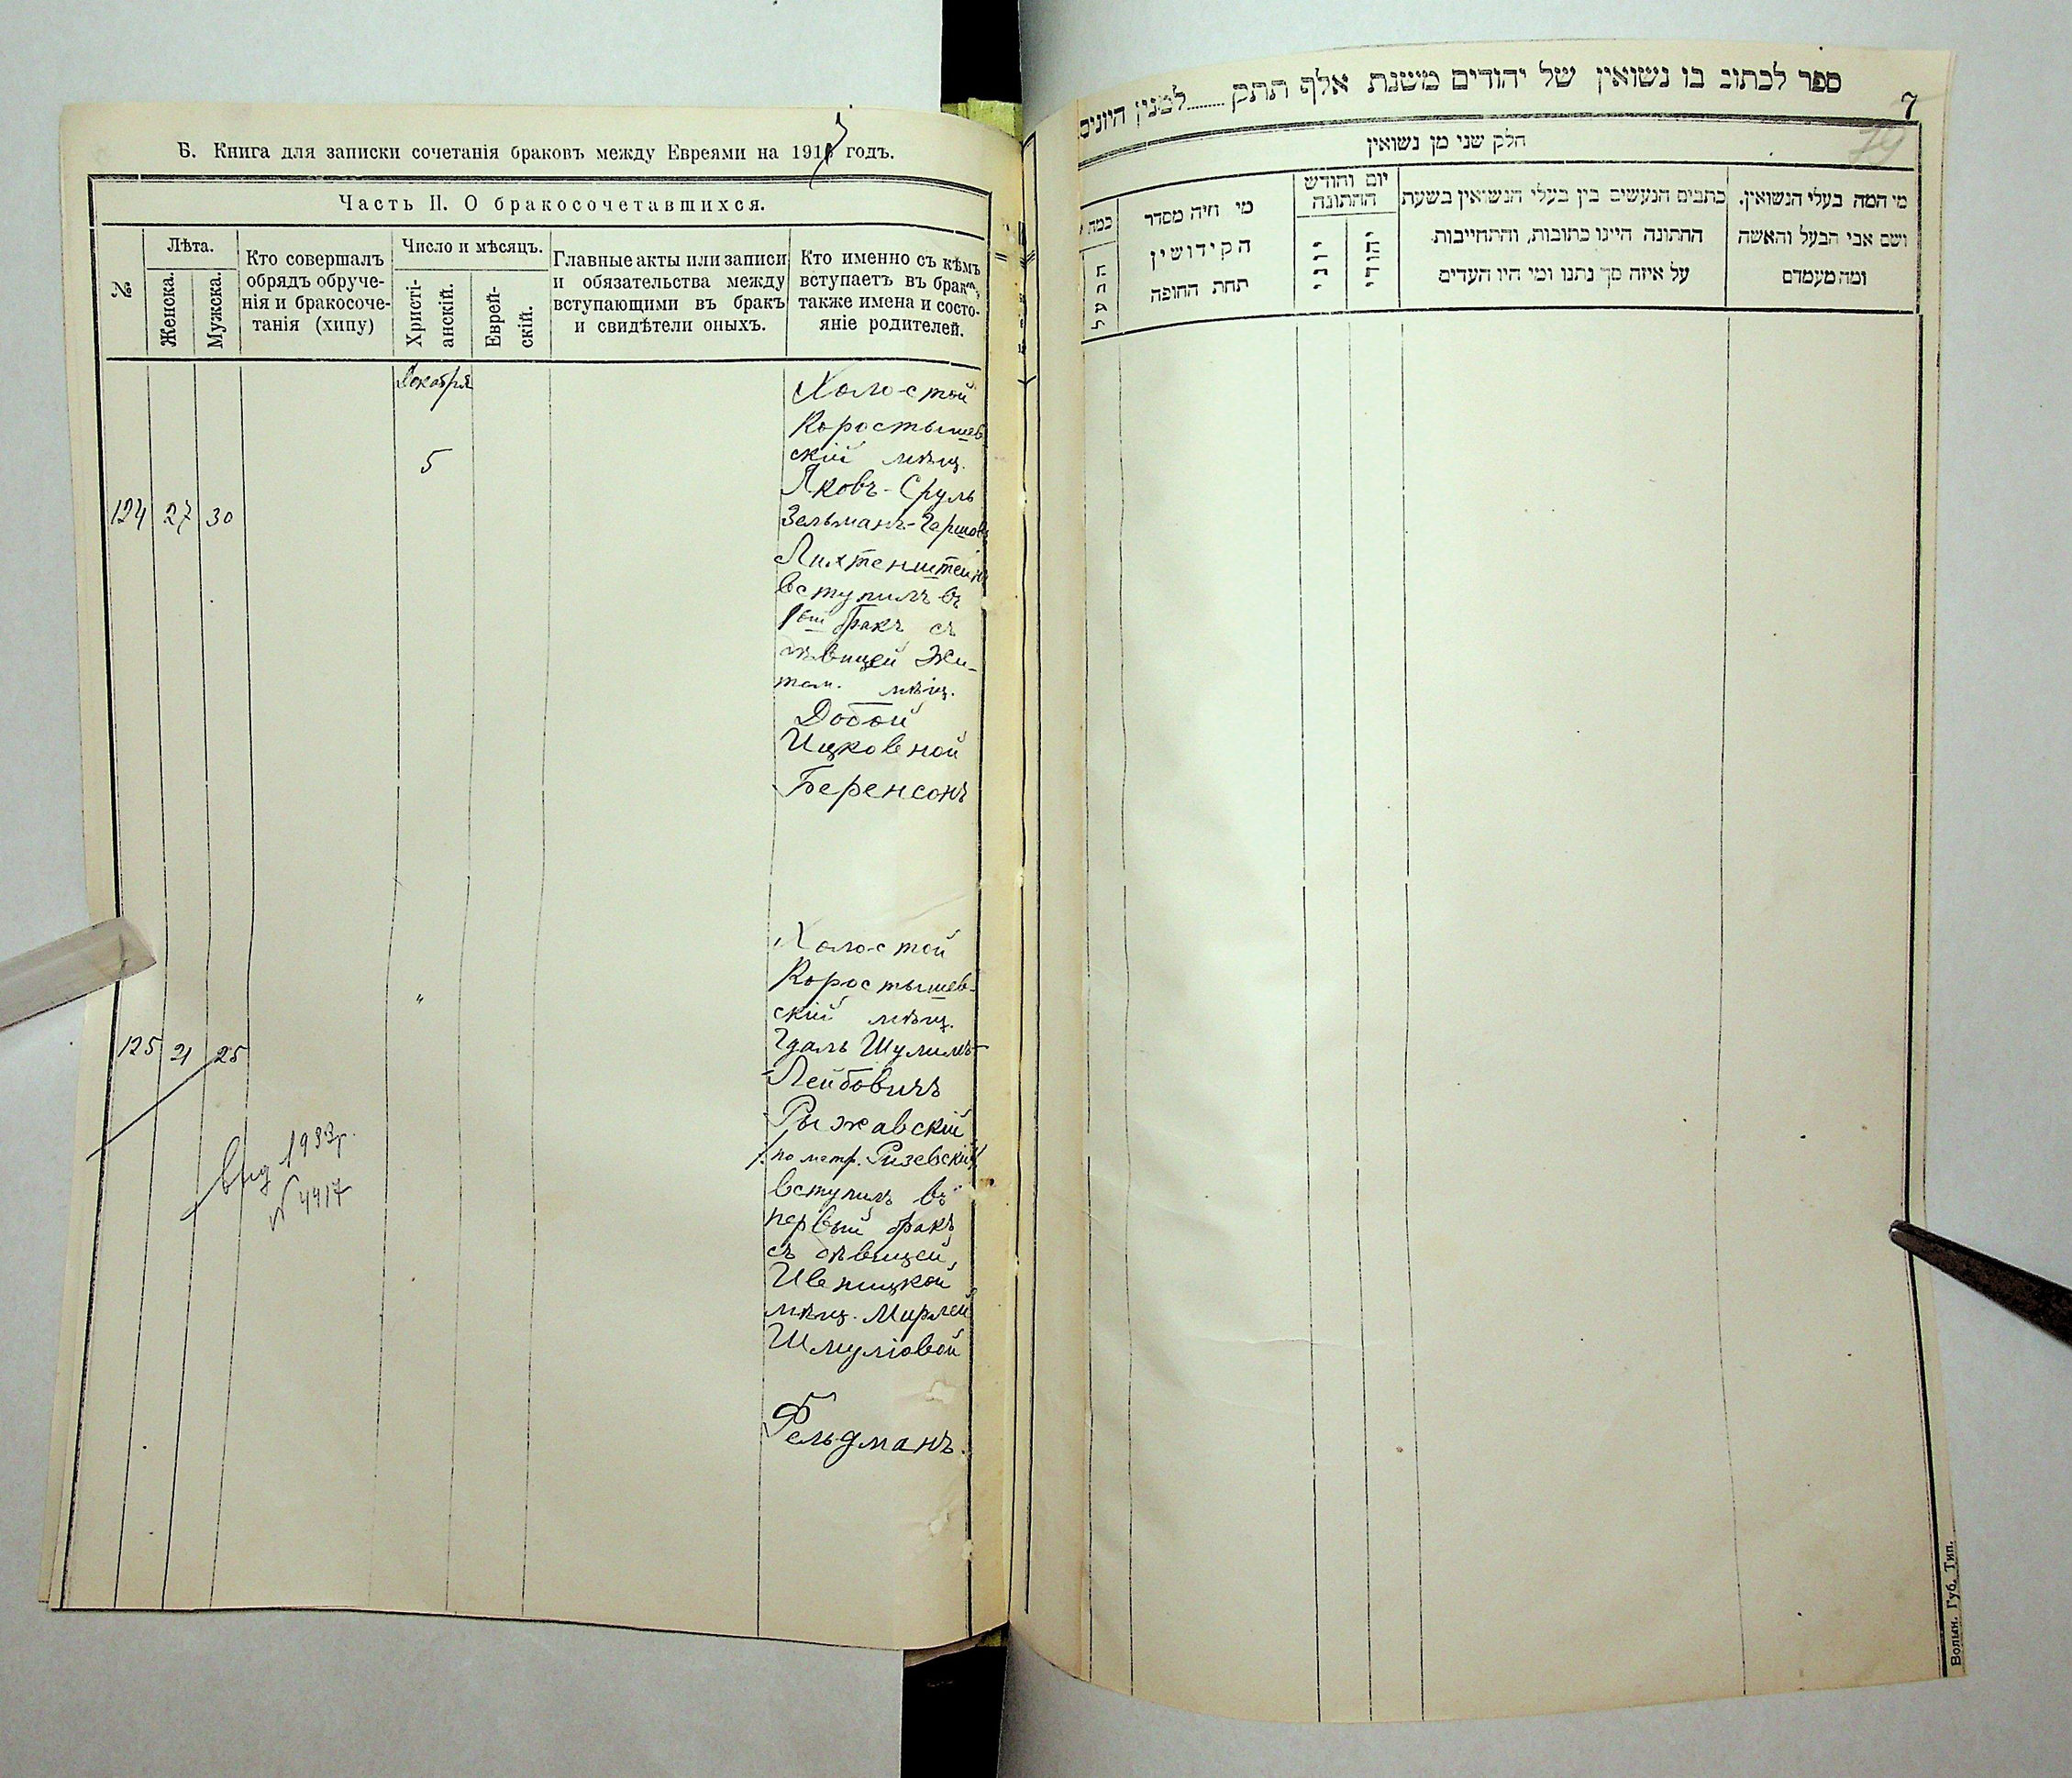 Б. Книга для записки сочетанія браковъ между Евреями на 1917 годъ.
Часть II. О бракосочетавшихся.
№
Лѣта.
Женска.
Мужска.
Кто совершалъ
обрядъ обруче-
нія и бракосоче-
танія (хипу)
Число и мѣсяцъ.
Христі-
анскій.
Еврей-
скій.
Главные акты или записи
и обязательства между
вступающими въ бракъ
и свидѣтели оныхъ.
Кто именно съ кѣмъ
вступаетъ въ бракъ,
также имена и состо-
яніе родителей.
Декабря
5
124 27 30
Холостой
Коростышев
скій мѣщ.
Яковъ-Сруль
Зельманъ-Гершов
Лихтенштейнъ
вступилъ въ
1ый бракъ съ
дѣвицей Жи-
том. мѣщ.
Добой
Ицковной
Беренсонъ
"
125 21 25
вид 1933г.
№ 4417
Холостой
Коростышев-
скій мѣщ.
Гдаль Шулимъ-
Лейбовичъ
Рыжавскій
/по метр. Ризевскій/
вступилъ въ
первый бракъ
съ дѣвицей,
Ивницкой
мѣщ. Мирлей
Шмуліовой
Фельдманъ.
ספר לכתוב בו נשואין של יהודים משנת אלף תתק........למנין היונים
7
79
חלק שני מן נשואין
כמה
הבעל
מי היה מסדר
הקידושין
תחת החופה
יום וחודש
החתונה
יוני
יהודי
כתבים הנעשים בין בעלי הנשואין בשעת
החתונה היינו כתובות, והתחייבות
על איזה סך נתנו ומי היו העדים
מי המה בעלי הנשואין.
ושם אבי הבעל והאשה
ומה מעמדם
Волын. Губ. Тип.